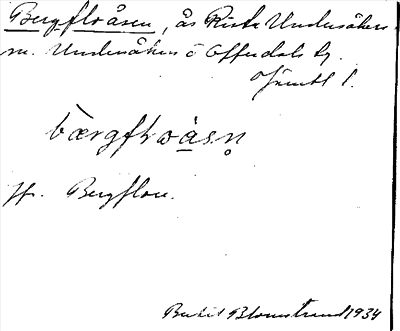 Bergfloåsen, ås Rista Undersåkers
sn. Undersåkers o Offerdals tg.
Jämtl l.
bærgflwåsn̥
Jfr. Bergflon.
Bertil Blomstrand 1934